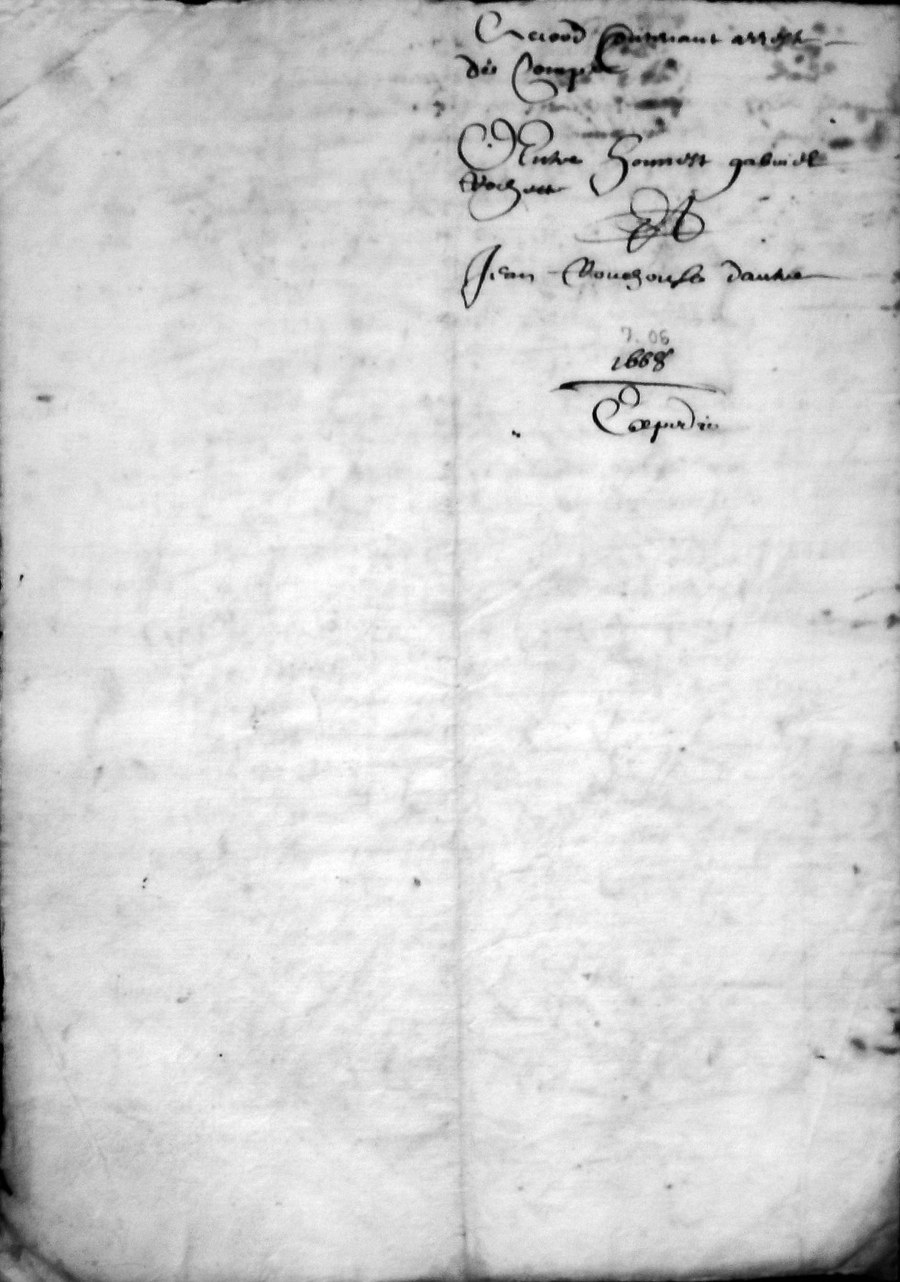 Accord Contenant arrest
des Compte
Entre honnest gabriel
Rochette
Et
Jean Rouchouse dautre
7. 06
1668
Expedie